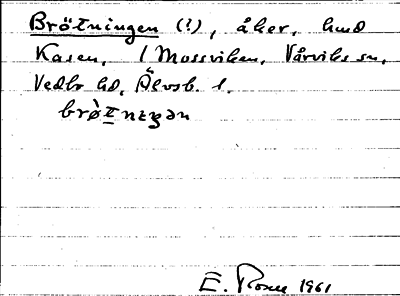 Brötningen (?), åker, hmd
Kasen, l Mossviken, Vårviks sn,
Vedbo hd, Älvsb. l.
brø̀tnıŋən
E. 1961